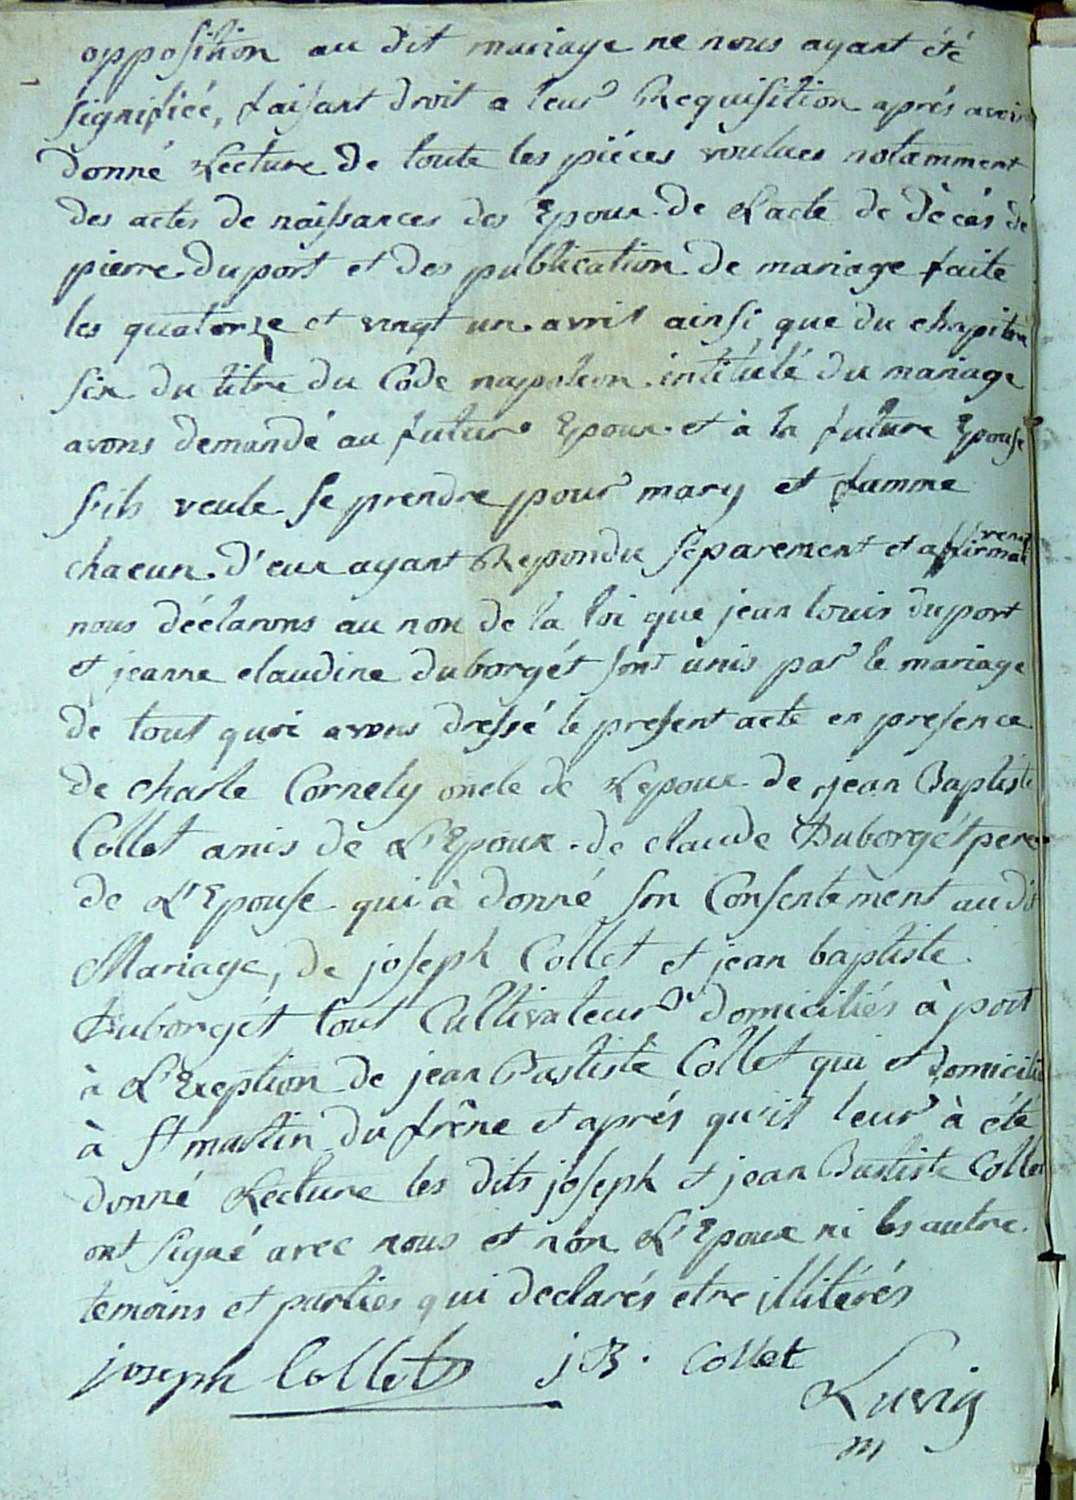 opposition au dit mariage ne nous ayant été
signifiée, faisant droit a leur Requisition aprés avoir
donné Lecture de toute les piéces voulues notamment
des actes de naissances des Epoux de L'acte de décés de
pierre duport et des publication de mariage faite
les quatorze et vingt un avril ainsi que du chapitre
six du titre du Code napoleon intitulé du mariage
avons demandé au futur Epoux et à la future Epouse
s'ils veule se prendre pour mary et famme
chacun d'eux ayant Repondu séparement et affirmati
vement
nous déclarons au non de la loi que jean louis duport
et jeanne claudine duborgét sont unis par le mariage
de tout quoi avons dressé le present acte en presence
de charle Cornely oncle de L'epoux de jean Baptiste
Collet amis de L'Epoux de claude Duborgét pere
de L'Epouse qui à donné son Consentement au dit
Mariage, de joseph Collet et jean baptiste
Duborgét tout Cultivateur domiciliés à port
à L'Exeption de jean Bastiste Collet qui et domicilié
à St martin du frêne et aprés qu'il leur à été
donné Lecture les dits joseph et jean Bastiste Collet
ont signé avec nous et non L'Epoux ni les autre
temoins et parties qui declarés etre illitérés
joseph Collet j B. Collet